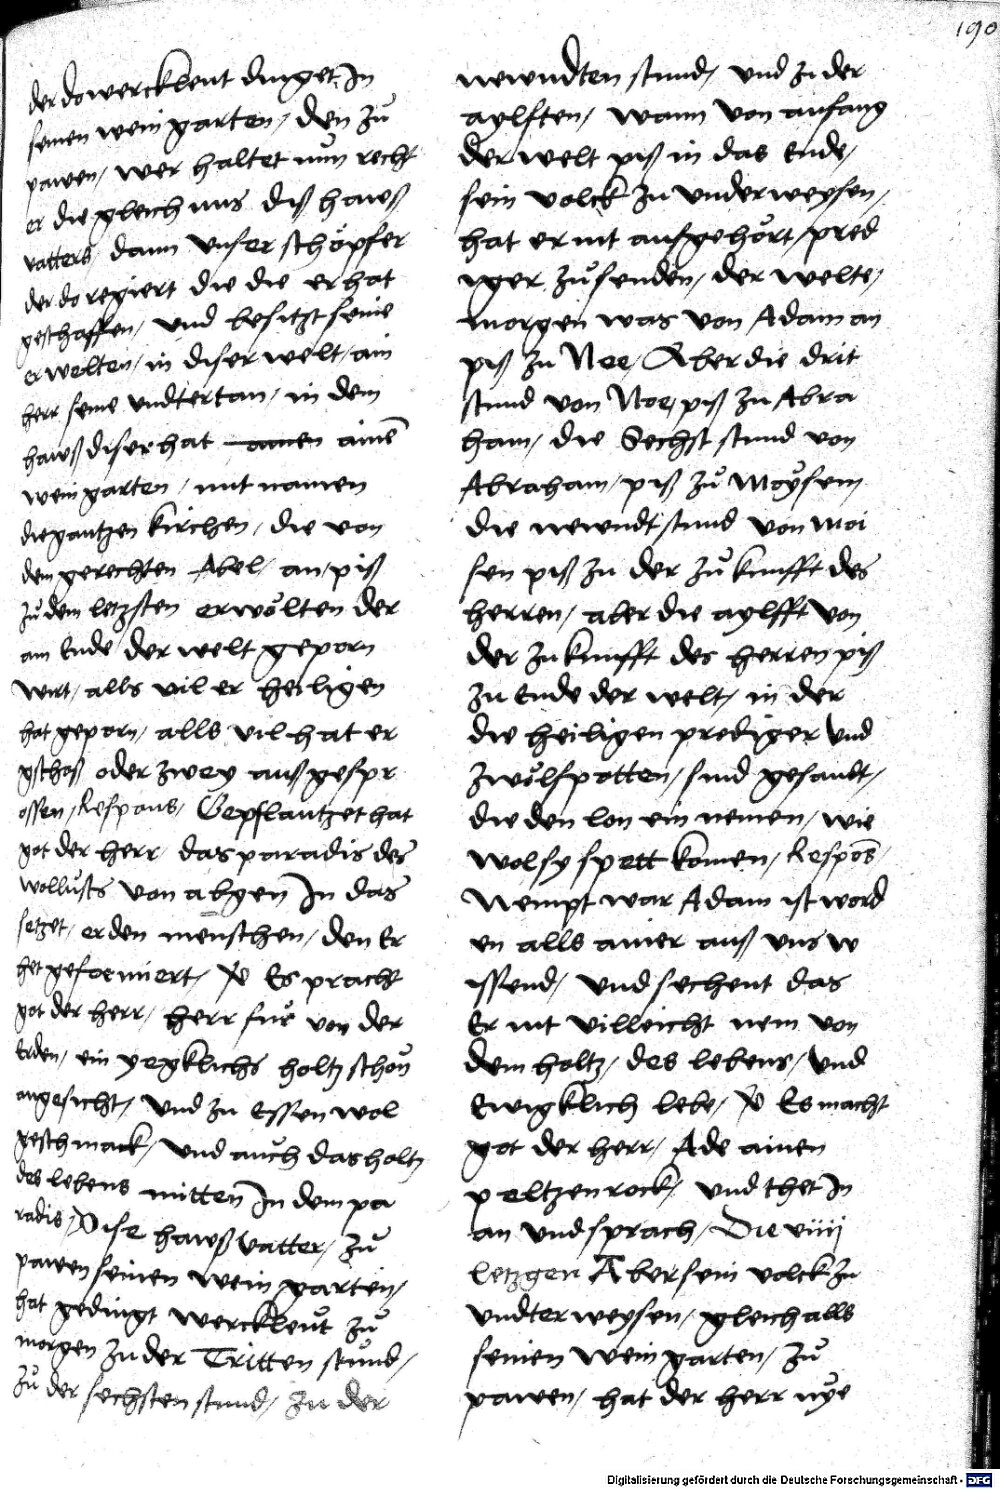 190
der do werckleut dinget In
seinen wein garten / den zů
pawen / wer haltet nun recht
er die gleich nus diß hawß
vatters / dann unser schöpfer
der do regiert die die er hat
geschaffen / und besitzt seine
erwelten / in diser welt / ain
herr seine undtertan / in dem
hawß diser hat ainē
wein garten / mit namen
die gantzen kirchen / die von
dem gerechten Abel / an / piß
zů dem letzsten erwölten der
am Ende der welt geporn
wirt / alls vil er heiligen
hat geporn / alls vil hat er
gschoß oder zwey auß gespr
ossen / Respons / Gepflantzet hat
got der herr / das paradis des
wollusts von abgen In das
setzet / er den menschen / den Er
het geformiert / V Es pracht
got der herr / herr für von der
Erden / ein yegklichs holtz schön
angesicht / und zu Essen wol
geschmack / und auch das holtz
des lebens mitten In dem pa
radis / Dise hawß vatter / zů
pawen seinen wein garten /
hat gedingt werckleut zů
morgen zu der Tritten stund /
zů der sechsten stund / zu der
newndten stund / und zu der
aylften / wann von anfang
der welt piß in das Ende /
sein volck zu underweysen /
hat er nit aufgehört / pred
iger zů senden / der welte /
morgen was von Adam an
piß zu Noe / Aber die drit
stund von Noe / piß zu Abra
ham / die Sechst stund von
Abraham / piß zů Moÿsem
die newndt stund von Moi
sen piß zu der zůkunfft des
herren / aber die aylfft von
der zukunfft des herren piß
zu Ende der welt / in der
die heiligen prediger und
zwölfpotten / sind gesandt /
die den lon ein nemen / wie
wol sy spett komen / Respōs /
Nempt war Adam ist word
en alls ainer auß uns w
issend / und sechent das
Er nit villeicht nem von
dem holtz / des lebens / und
Ewigklich lebe / V Es macht
got der herr / Ade ainen
peltzen rock / und thet In
an und sprach / Die viiij
letzgen Aber sein volck zu
undterweysen / gleich alls
seinen wein garten / zů
pawen / hat der herr nye
Digitalisierung gefördert durch die Deutsche Forschungsgemeinschaft - DFG